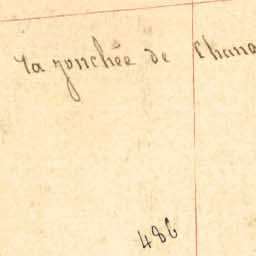 la jonchée de Chana
486